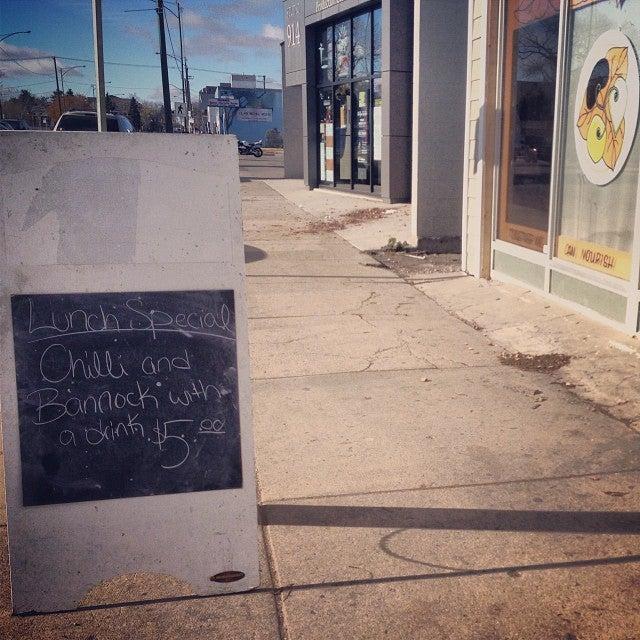 914
Lunch Special
Chilli and
Bannock with
a drink $5.00
CAN NOURISH